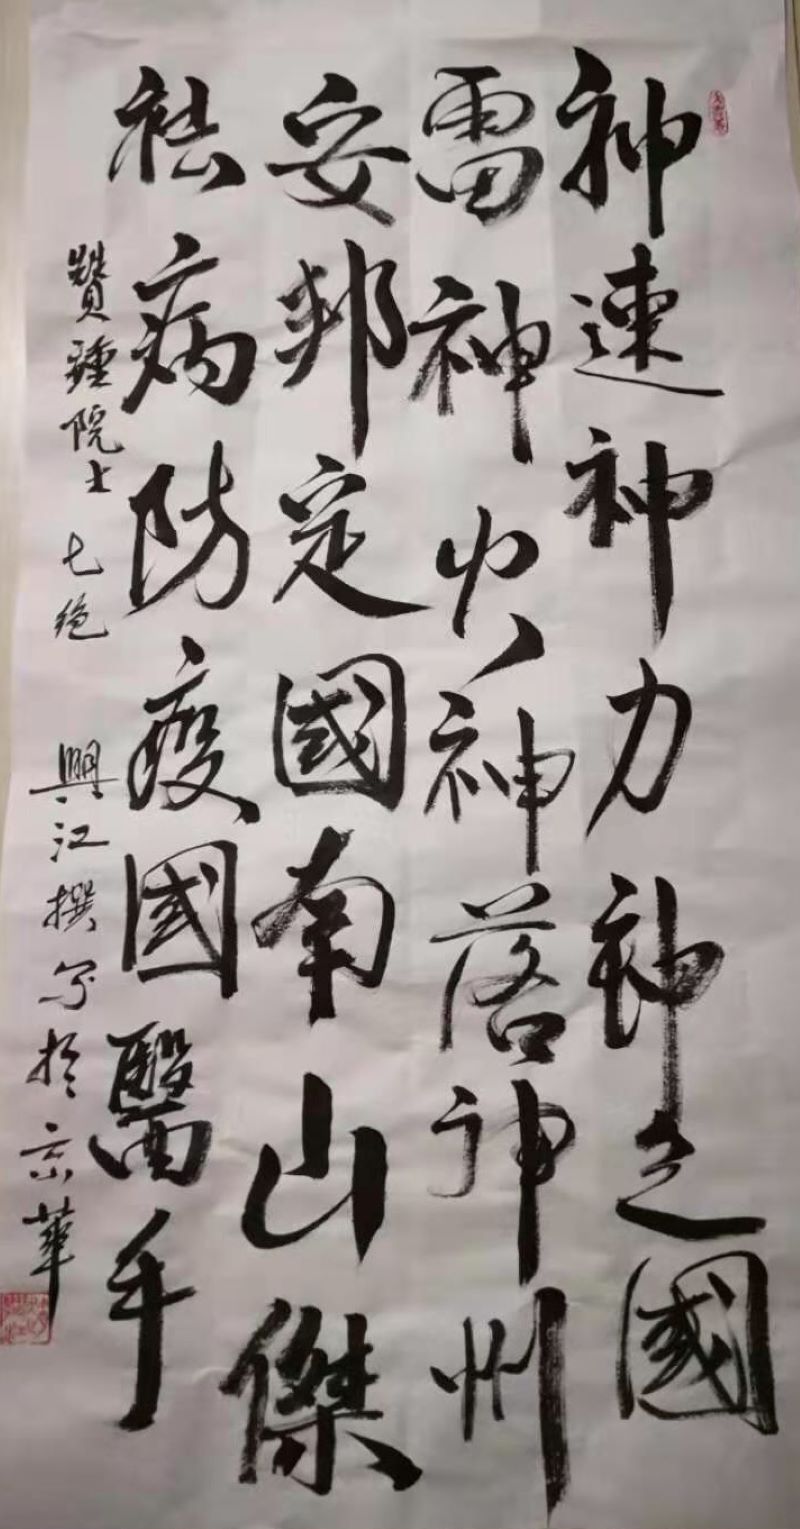 神速神力神之國
雷神火神落神州
安邦定國南山傑
祛病防疫國醫手
贊鍾院士 七絕 興江撰书於京華